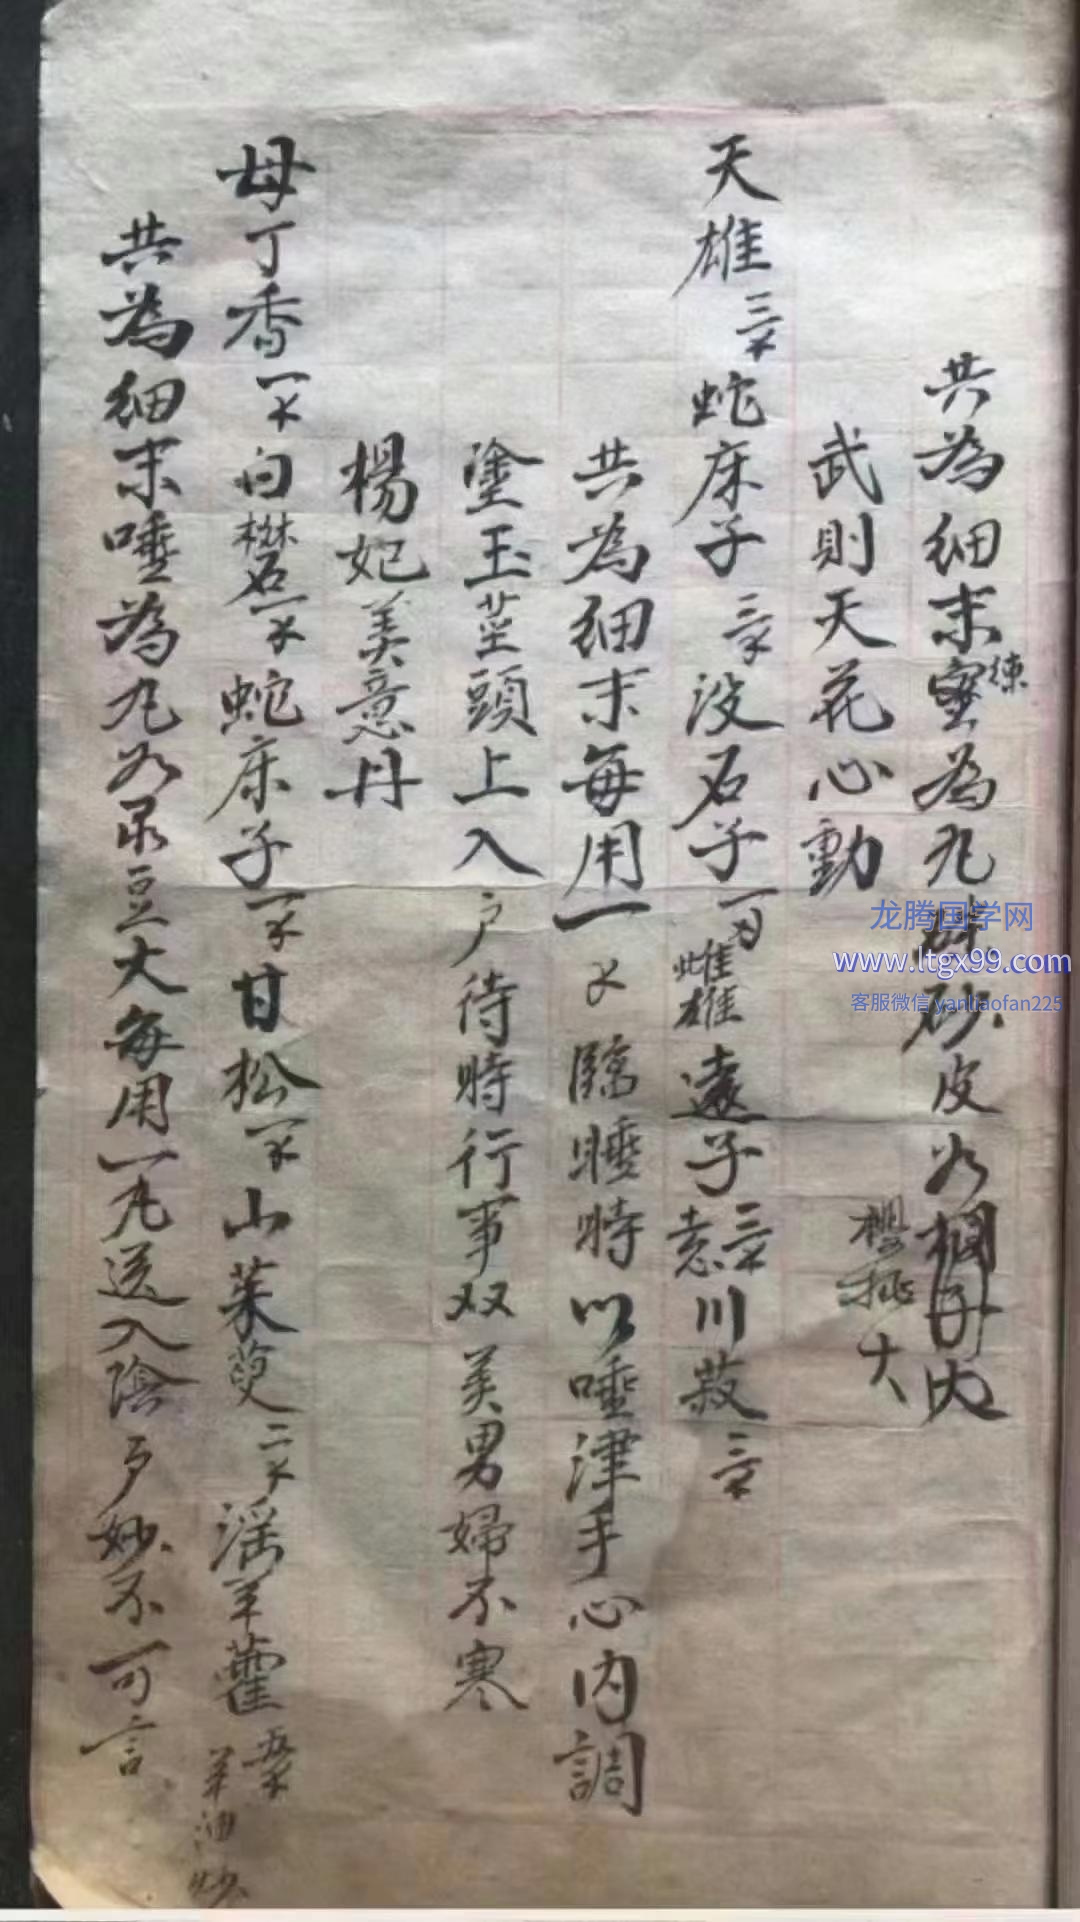 共為細末煉蜜為丸硃砂皮如桐子大
櫻桃大
武則天花心動
天雄三个蛇床子三个没石子一百雌雄遠志子三个川菽三个
共為細末每用一个臨睡時以唾津手心内調
塗玉莖頭上入户待時行事双美男婦不寒
楊妃美意丹
母丁香一个白礬石一个蛇床子一个甘松一个山茱萸二个淫羊藿五个羊油炒
共為細末唾為丸如彔豆大每用一丸送入陰户妙不可言
龙腾国学网
www.ltgx99.com
客服微信 yanliaofan225